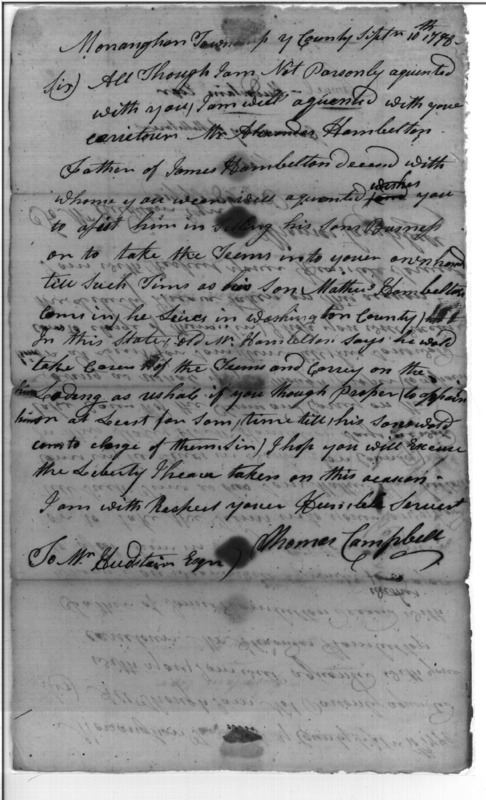 Monanghan Township y County Septr 10th 1798
Sir) All Though I am Not Parsonly aquented
with you, I am well aquented with your
carietour Mr Alexander Hambelton
Father of James Hambelton Deceasd with
whome you wear well aquented wishes you
to asist him in his Sons Busness
on to take the Teems into youer own hand
till Such Tims as his Son Mathew Hambelton
Coms in, he Lives in Washington County
In this State, old Mr Hambelton Says he wold
take Care of the Teems and Correy on the
Loding as ushal if you though Proper to appoin
him or at Least for Som time till his Son
com to charge of them Sir, I hope you will Excuse
the Liberty I heave taken on this ocasion
I am with Respect youer Humble Servent
Thomas Campbell
To Mr Esqr